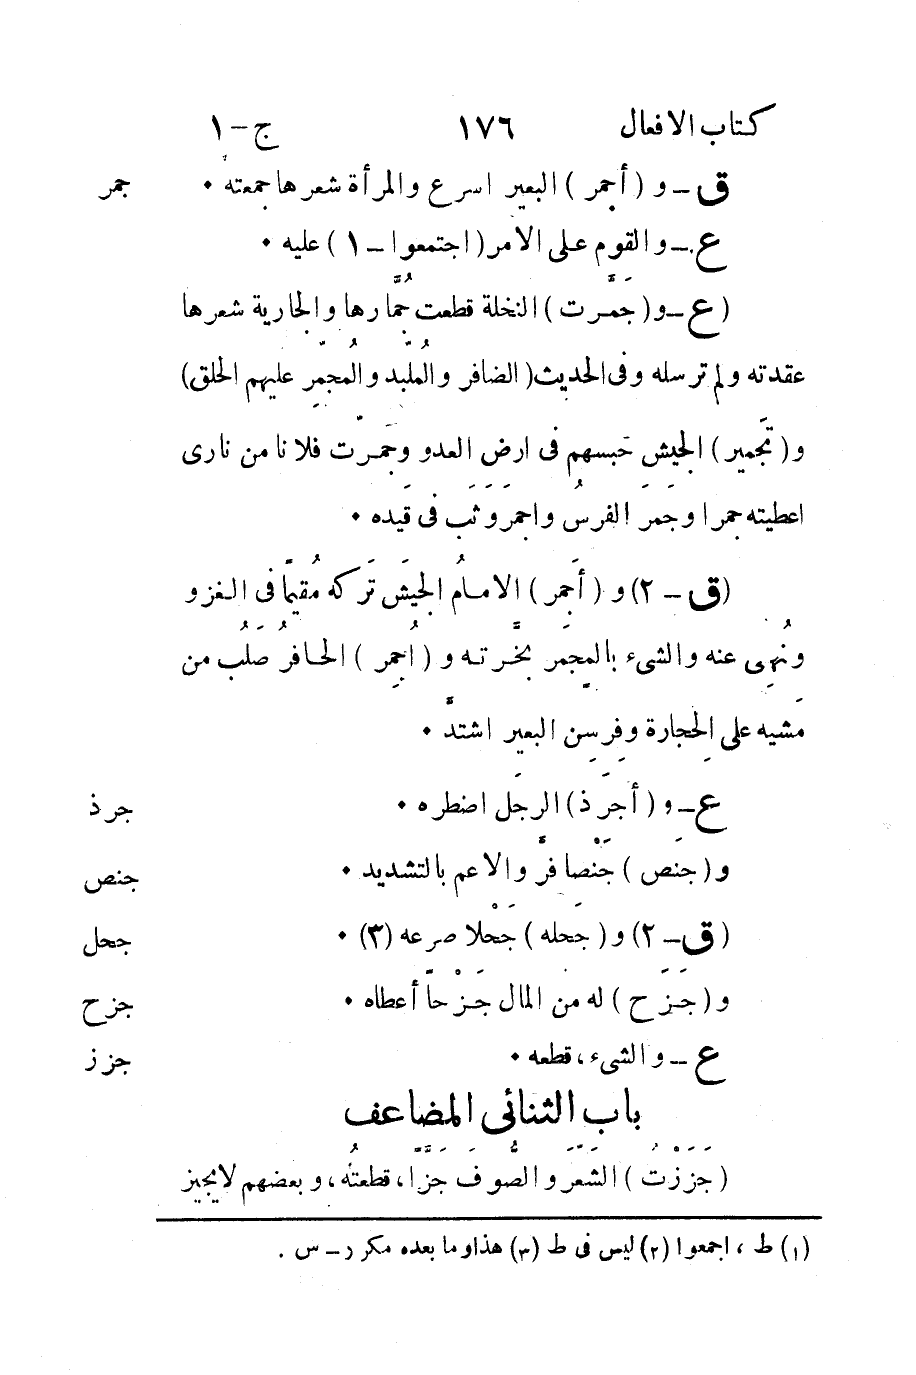 كتاب الافعال ١٧٦ ج-١
ق - و (أجمر) البعير اسرع والمرأة شعرها جمعته ٠ جمر
ع - والقوم على الامر (اجتمعوا - ١) عليه ٠
(ع - و (جَمَّرت) النخلة قطعت جُمَّارها والجارية شعرها
عقدته ولم ترسله وفى الحديث (الضافر والمُلبّد والمُجمّر عليهم الحلق)
و (تَجمير) الجيش حَبسهم فى ارض العدو وجَمّرت فلانا من نارى
اعطيته جمرا وجَمَر الفرسُ واجمَرَ وَثَب فى قَيده ٠
(ق - ٢) و (أَجمر) الامامُ الجيشَ تَركه مُقيمًا فى الغزو
ونُهِى عنه والشىء بالمِجمَر بخّرته و (اُجمِر) الحافرُ صَلُب من
مَشيه على الحِجارة وفِرسِن البعير اشتدّ ٠
ع - و (أجرَذ) الرجَل اضطره ٠ جرذ
و (جنَص) جَنْصا فرّ والاعم بالتشديد ٠ جنص
(ق - ٢) و (جحَله) جَحْلا صرعه (٣) ٠ جحل
و (جَزَح) له من المال جَزْحاً أعطاه ٠ جزح
ع - والشىء، قطعه ٠ جزز
باب الثنائى المضاعف
(جَزَزْتُ) الشَعَر والصُّوفَ جَزًّا، قطعتُه، وبعضهم لايجيز
(١) ط، اجمعوا (٢) ليس فى ط (٣) هذا وما بعده مكرر - س .